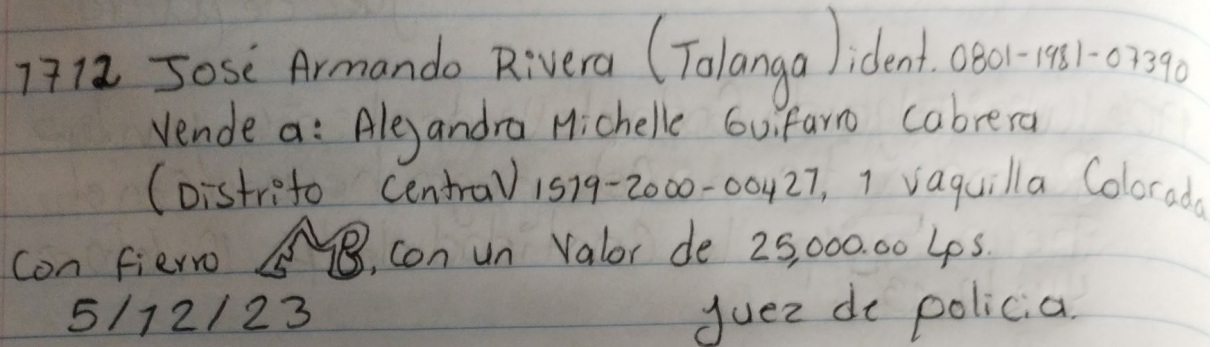 1712 José Armando Rivera (Talanga) ident. 0801-1981-07390
Vende a: Alejandra Michelle Guifarro Cabrera
(Distrito Central) 1519-2000-00427, 1 vaquilla Colorada
Con fierro , con un Valor de 25,000.00 Lps.
5/12/23 juez de policia.